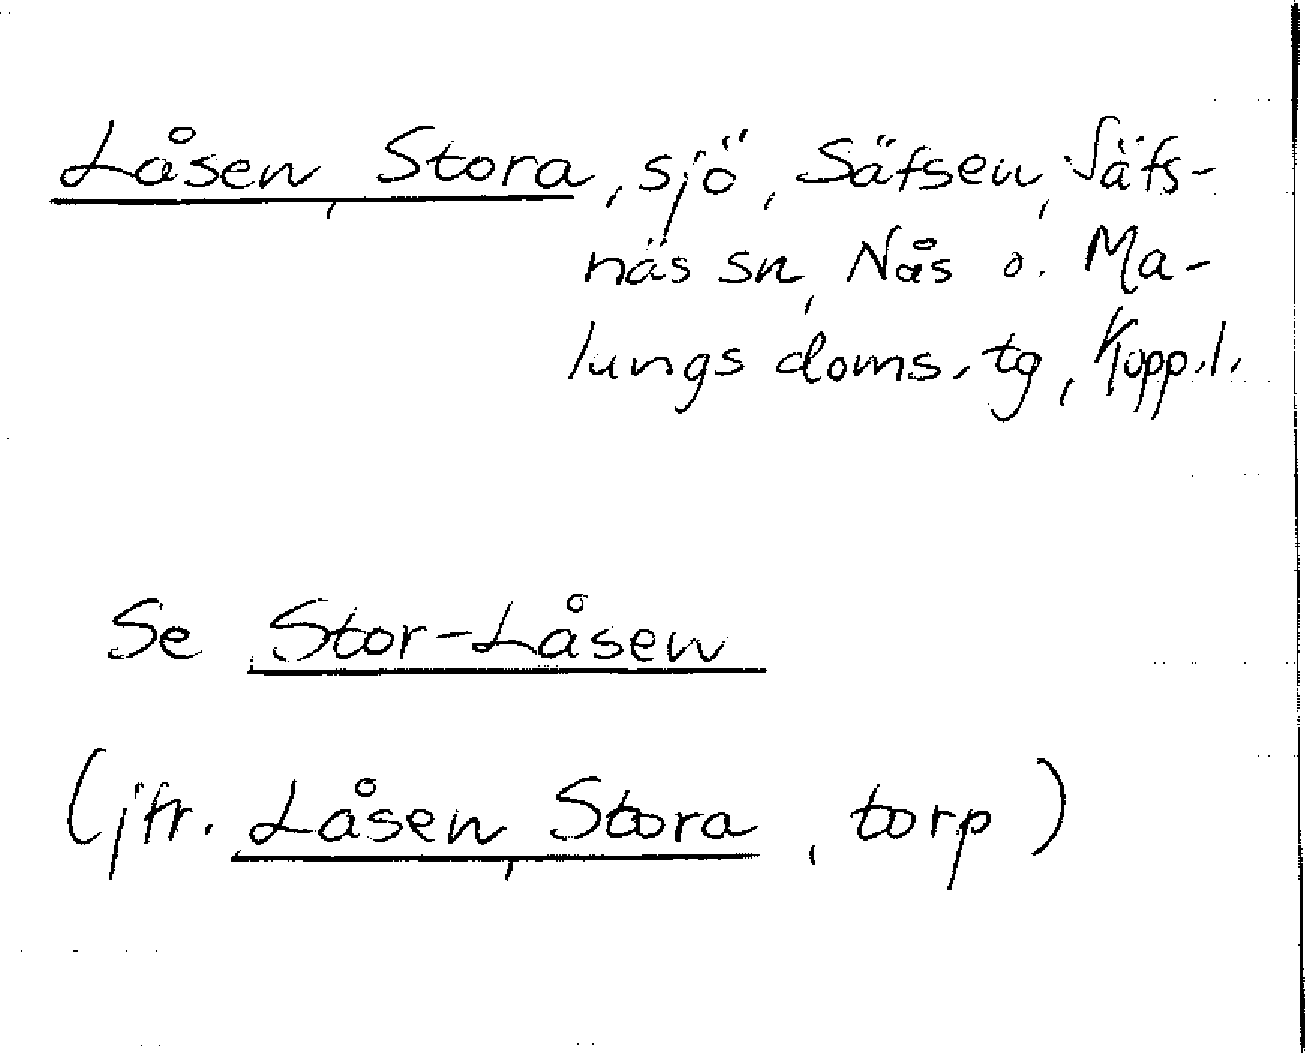 Låsen, Stora, sjö, Säfsen, Säfs-
näs sn, Nås o. Ma-
lungs doms. tg, Kopp. l.
Se Stor-Låsen
(jfr. Låsen, Stora, torp)